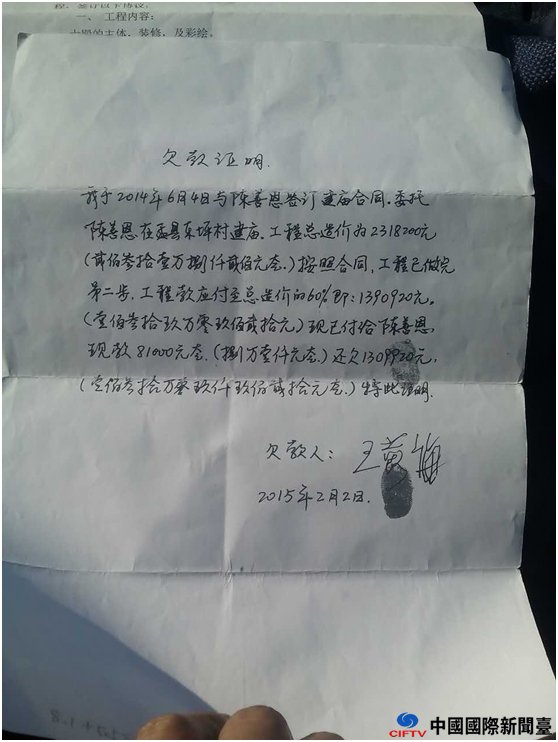 程，签订以下协议：
一、工程内容：
大殿的主体，装修，及彩绘。
欠款证明.
我于2014年6月4日与陈善恩签订建庙合同。委托
陈善恩在盂县东坪村建庙。工程总造价为2318200元
(贰佰叁拾壹万捌仟贰佰元整.)按照合同,工程已做完
第二步,工程款应付至总造价的60%即:1390920元。
(壹佰叁拾玖万零玖佰贰拾元)现已付给陈善恩,
现款81000元整.(捌万壹仟元整.)还欠1309920元,
(壹佰叁拾万零玖仟玖佰贰拾元整.)特此证明.
欠款人:王
2015年2月2日.
CIFTV 中國國際新聞臺